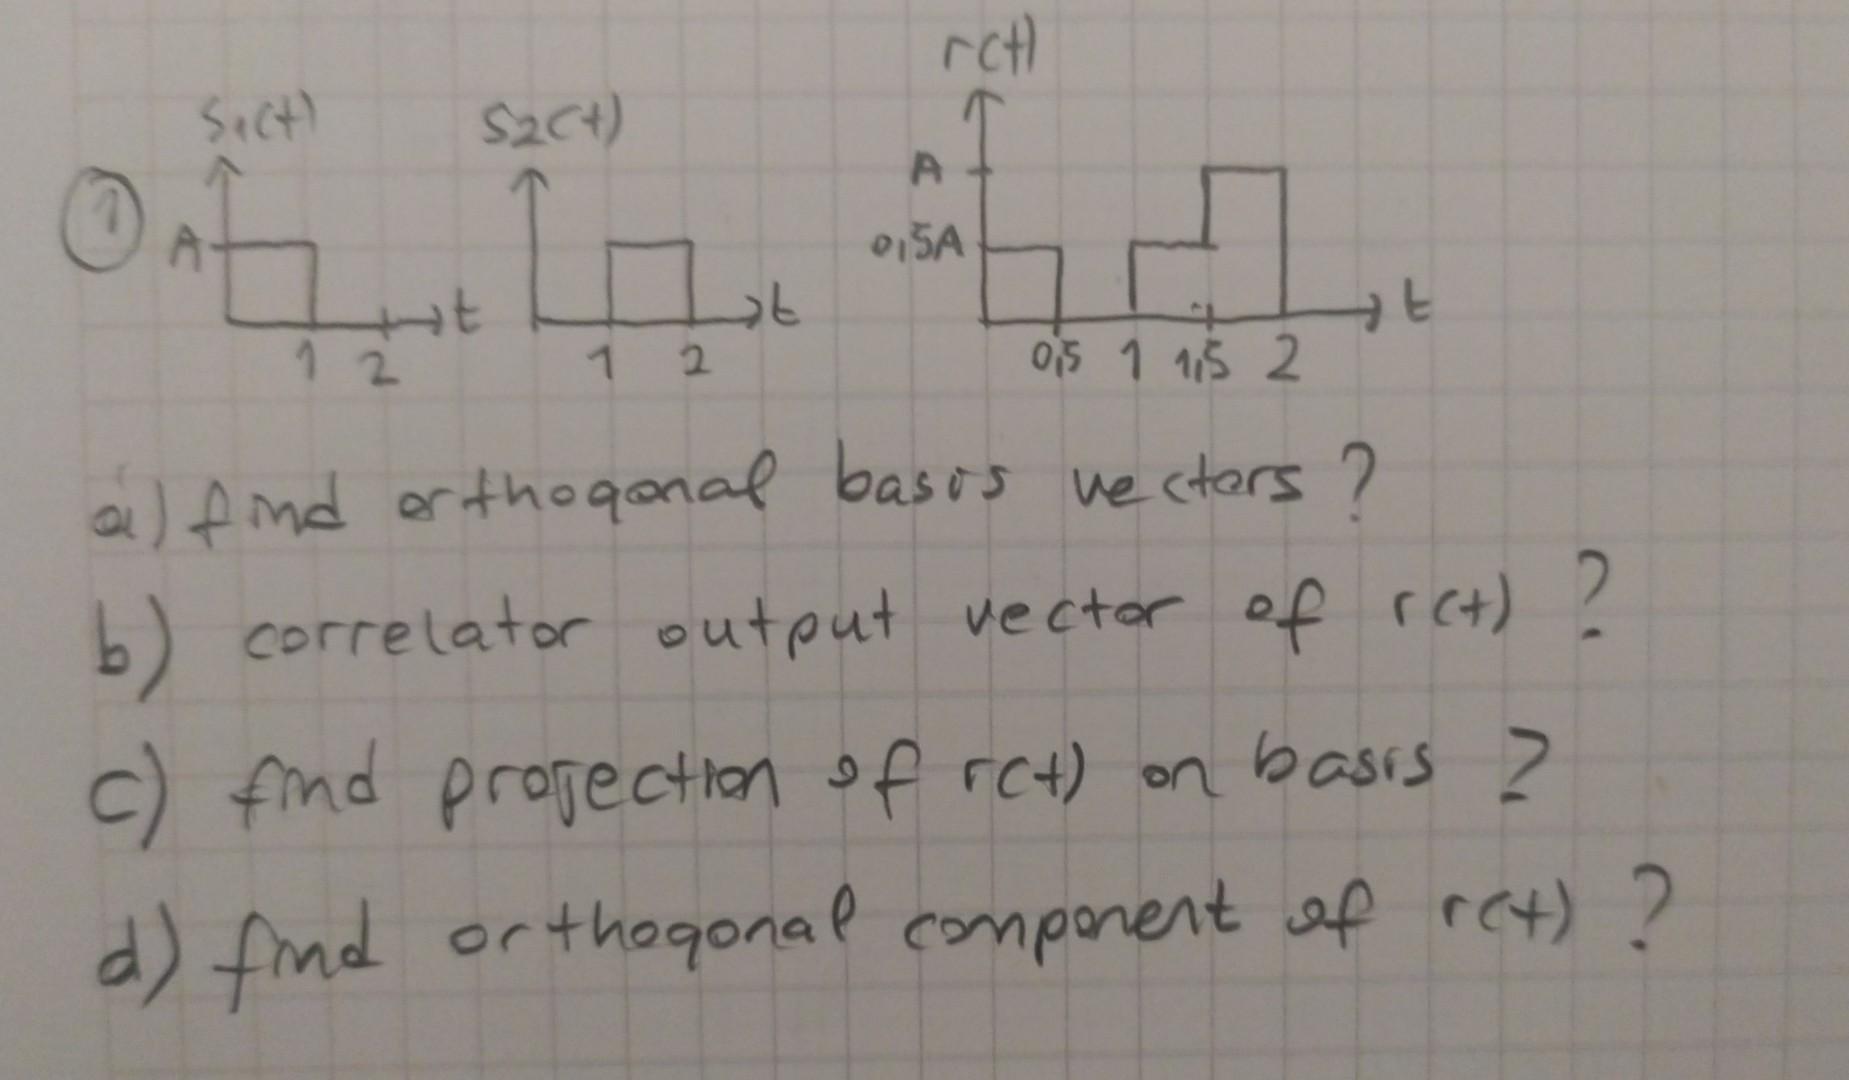 r(t)
s1(t) s2(t)
A
1 A 0,5A
t t t
1 2 1 2 0,5 1 1,5 2
a) find orthogonal basis vectors?
b) correlator output vector of r(t) ?
c) find projection of r(t) on basis ?
d) find orthogonal component of r(t) ?